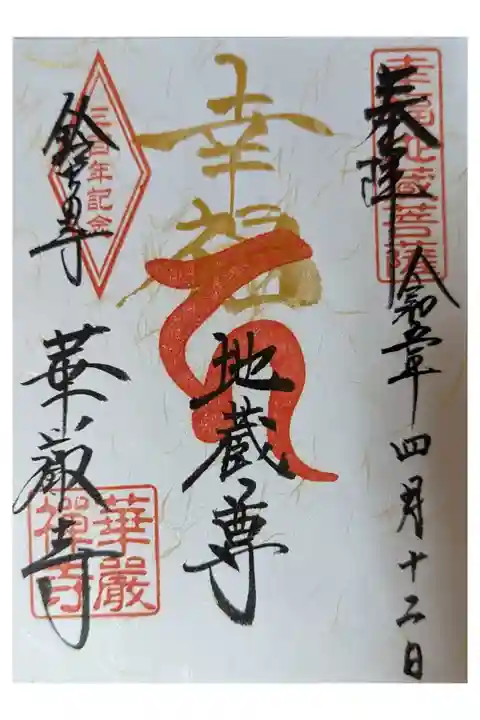 奉拝
幸福地蔵菩薩
令和五年四月十二日
幸福
地蔵尊
三百年記念
鈴虫寺
華厳寺
華嚴禪寺